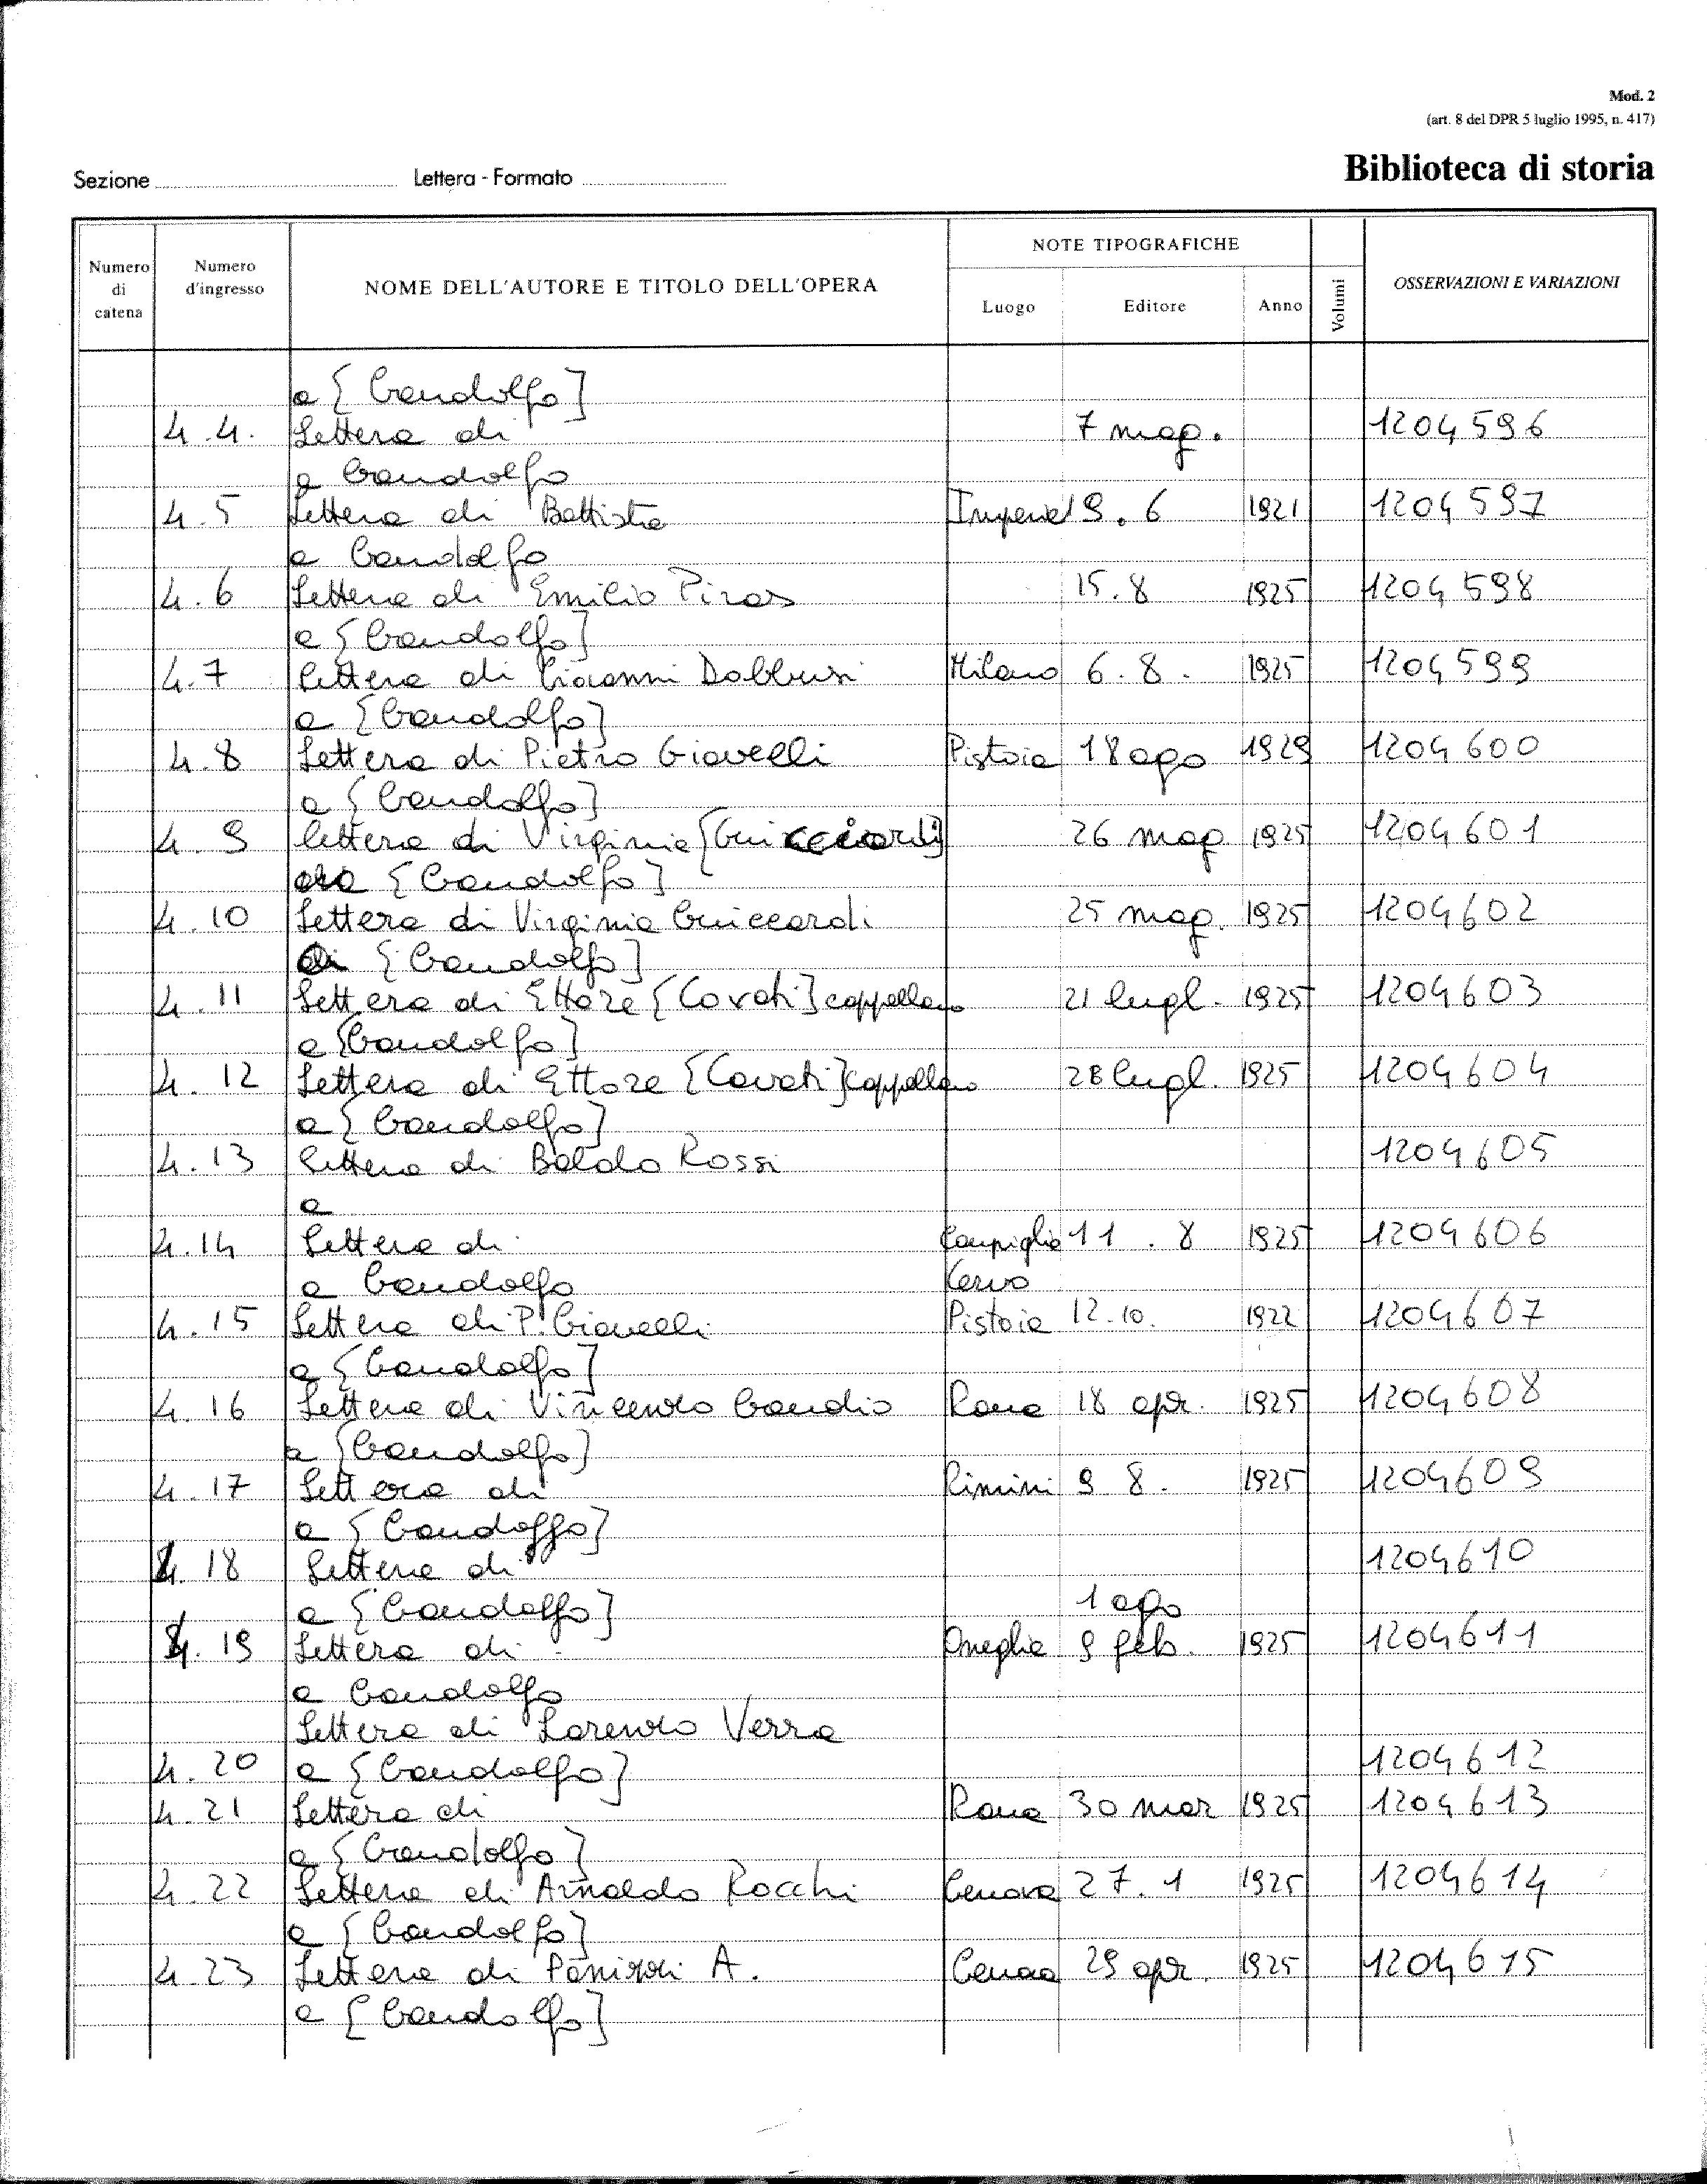 Mod. 2
(art. 8 del DPR 5 luglio 1995, n. 417)
Sezione Lettera - Formato Biblioteca di storia
Numero di catena Numero d'ingresso NOME DELL'AUTORE E TITOLO DELL'OPERA NOTE TIPOGRAFICHE Luogo Editore Anno Volumi OSSERVAZIONI E VARIAZIONI
a [Gandolfo]
4.4. Lettera di 7 mag. 1204596
a Gandolfo
4.5 Lettera di Battista Imperia 9.6 1921 1204597
a Gandolfo
4.6 Lettera di Emilio Piras 15.8 1925 1204598
a [Gandolfo]
4.7 Lettera di Giovanni Milano 6.8. 1925 1204599
a [Gandolfo]
4.8 Lettera di Pietro Giovelli Pistoia 18 ago 1929 1204600
a [Gandolfo]
4.9 Lettera di Virginia [Guicciardi] 26 mag 1925 1204601
a [Gandolfo]
4.10 Lettera di Virginia Guiccardi 25 mag. 1925 1204602
[Gandolfo]
4.11 Lettera di Ettore [Covati] cappellano 21 lugl. 1925 1204603
a [Gandolfo]
4.12 Lettera di Ettore [Covati] cappellano 28 lugl. 1925 1204604
a [Gandolfo]
4.13 Lettera di Baldo Rossi 1204605
a
4.14 Lettera di Campiglia 11.8 1925 1204606
a Gandolfo Cervo
4.15 Lettera di P. Giovelli Pistoia 12.10. 1922 1204607
a [Gandolfo]
4.16 Lettera di Vincenzo Gaudio Roma 18 apr. 1925 1204608
a [Gandolfo]
4.17 Lettera di Rimini 9 8. 1925 1204609
a [Gandolfo]
4.18 Lettera di 1204610
a [Gandolfo] 1 ago
4.19 Lettera di Oneglia 9 feb. 1925 1204611
a Gandolfo
Lettera di Lorenzo Verra
4.20 a [Gandolfo] 1204612
4.21 Lettera di Roma 30 mar 1925 1204613
a [Gandolfo]
4.22 Lettera di Arnaldo Rocchi Genova 27.1 1925 1204614
a [Gandolfo]
4.23 Lettera di Panizzi A. Genova 29 apr. 1925 1204615
a [Gandolfo]